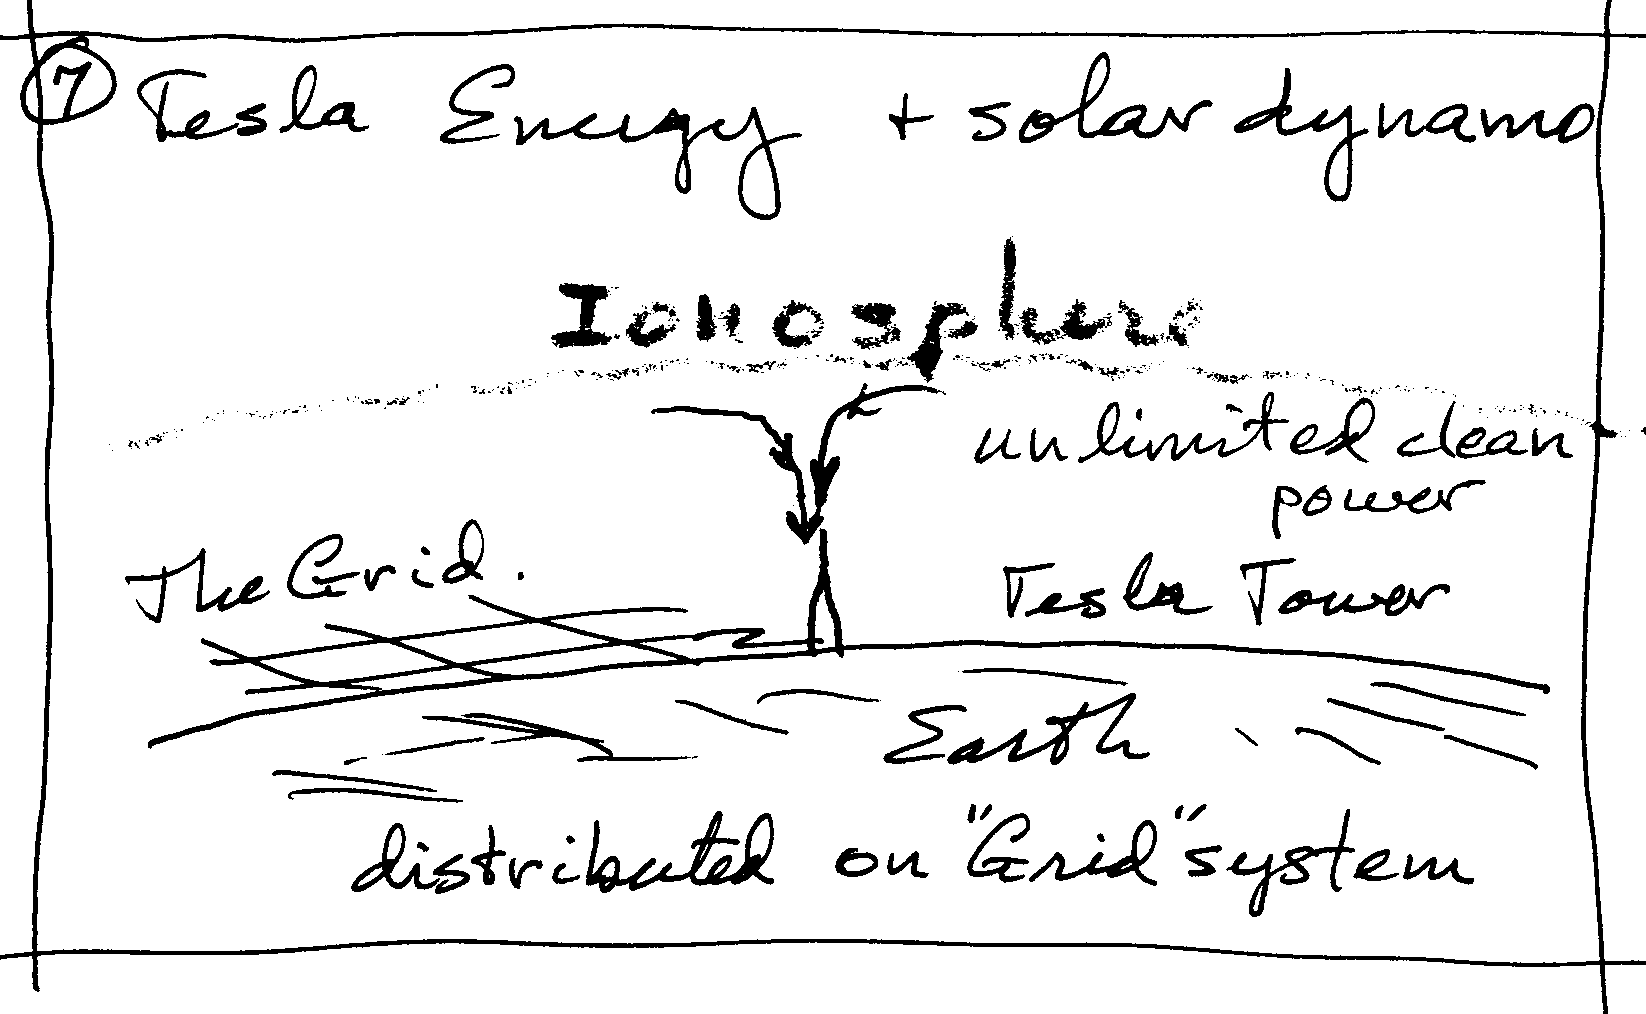 7 Tesla Energy + solar dynamo
Ionosphere
unlimited clean
power
The Grid.
Tesla Tower
Earth
distributed on "Grid" system